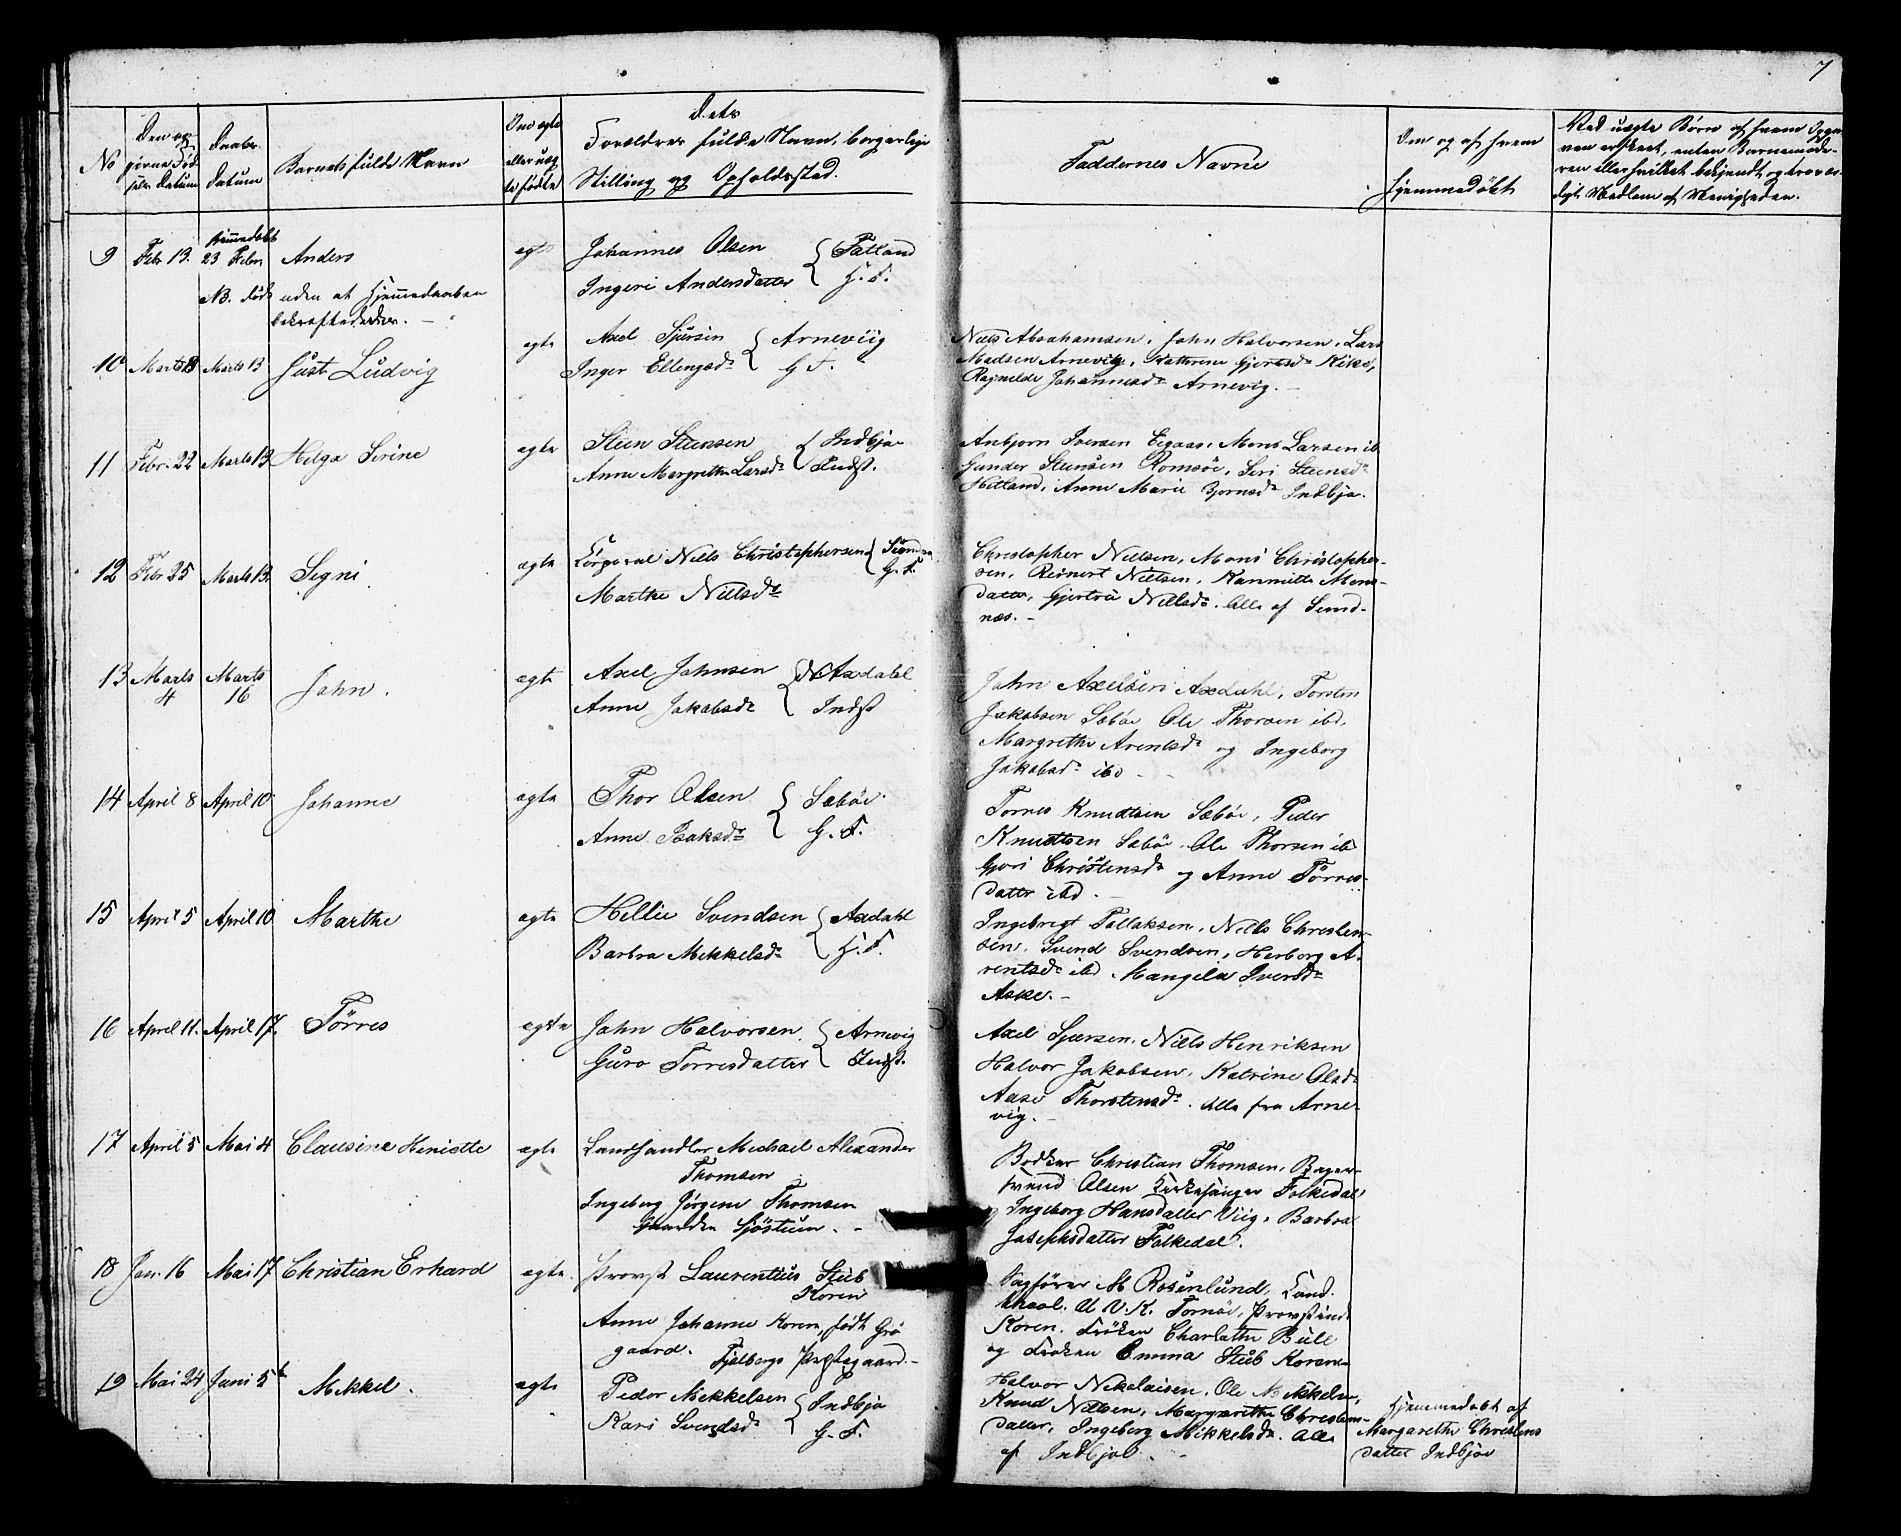 7
No
Den op-
givne Fød-
sels Datum
Daabs
Datum
Barnets fulde Navn
Om egte
eller ueg-
te fødte
Dets
Forældres fulde Navn, borgerlige
Stilling og Opholdssted.
Faddernes Navne
Om og af hvem
hjemmedøbt
Ved uegte Børn af hvem Opga-
ven er skeet, enten Barnemode-
ren eller hvilket bekjendt og trovær-
digt Medlem af Menigheden.
9 Febr 13. Hjemmedøbt 23 Febr. Anders egte Johannes Olsen Fatland
Ingeri Andersdatter G. F.
NB. døde uden at Hjemmedaaben
bekræftedes.
10 Marts 8 Marts 13 Gust Ludvig egte Axel Sjursen Arneviig
Inger Ellingsdr G F.
Niels Abrahamsen, John Halvorsen, Lars
Madsen Arnevig, Kathrine Gjertsdr Kike,
Ragnilde Johannesdr Arnevig.
11 Febr. 22 Marts 13 Helga Serine egte Steen Steensen Indbjo
Anne Margrethe Larsdr Indst.
Anbjorn Iversen Eigaas, Mons Larsen ib
Gunder Steensen Romsøe, Siri Steensdr
Hetland, Anne Marie Bjornsdr Indbjo.
12 Febr 25 Marts 13 Segni egte Corporal Niels Christophersen
G. F.
Marthe Nielsdr
Christopher Nielsen, Mons Christopher-
sen, Reinert Nielsen, Kannitte Mons-
datter, Gjertrü Nielsdr. Alle af Semd-
næs.
13 Marts 4 Marts 16 John. egte Axel Johnsen N Axdahl
Anne Jakobsdr Indst
John Axelsen Axdahl, Torsten
Jakobsen Sæbøe Ole Thorsen ibd,
Margrethe Arentsdr og Ingeborg
Jakobsdr ibd
14 April 8 April 10 Johanne egte Thor Olsen Sæbøe
Anne Isaksdr G. F.
Tornes Knudtsen Sæbøe, Peder
Knudtsen Sæbøe Ole Thorsen ibd
Gjori Christensdr og Anne Törres-
datter ibd
15 April 5 April 10 Marthe egte Hellie Svendsen Axdahl
Barbra Mikkelsdr G. F.
Ingebrigt Tollaksen, Niels Christen-
sen, Svend Svendsen, Herborg A-
rentsdr ibd Mangela Iversdr
Aske.
16 April 11. April 17. Törres egte John Halvorsen Arnevig
Guro Torresdatter Indst.
Axel Sjursen, Niels Henriksen
Halvor Jakobsen, Katrine Olsdr
Aase Thorstensdr. Alle fra Arne-
vig.
17 April 5 Mai 4 Clausine Heniette egte Landhandler Michael Alexander
Thomsen
Ingeborg Jörgene Thomsen
Gaarden Sjöstuen.
Bødker Christian Thomsen, Bager-
svend Olsen Kirkesanger Folkedal
Ingeborg Hansdatter Viig, Barbra
Josephsdatter Folkedal.
18 Jan. 16 Mai 17 Christian Erhard egte Provst Laurentius Stub
Koren
Anne Johanne Koren, født Grö-
gaard. Fjelbergs Præstegaard.
Sagfører M Rosenlund, Cand.
theol. A V. K. Tornöe, Provstinde
Koren, Frøken Charlotte Bull
og Frøken Emma Stub Koren
19 Mai 24 Juni 5 Mikkel. egte Peder Mikkelsen Indbjo
Kari Svendsdr G. F.
Halvor Nikolaisen, Ole Mikkelsen,
Knud Nielsen, Margrethe Christens-
datter, Ingeborg Mikkelsdr. Alle
af Indbjoe.
Hjemmedøbt af
Margarethe Christens
datter Indbjoe